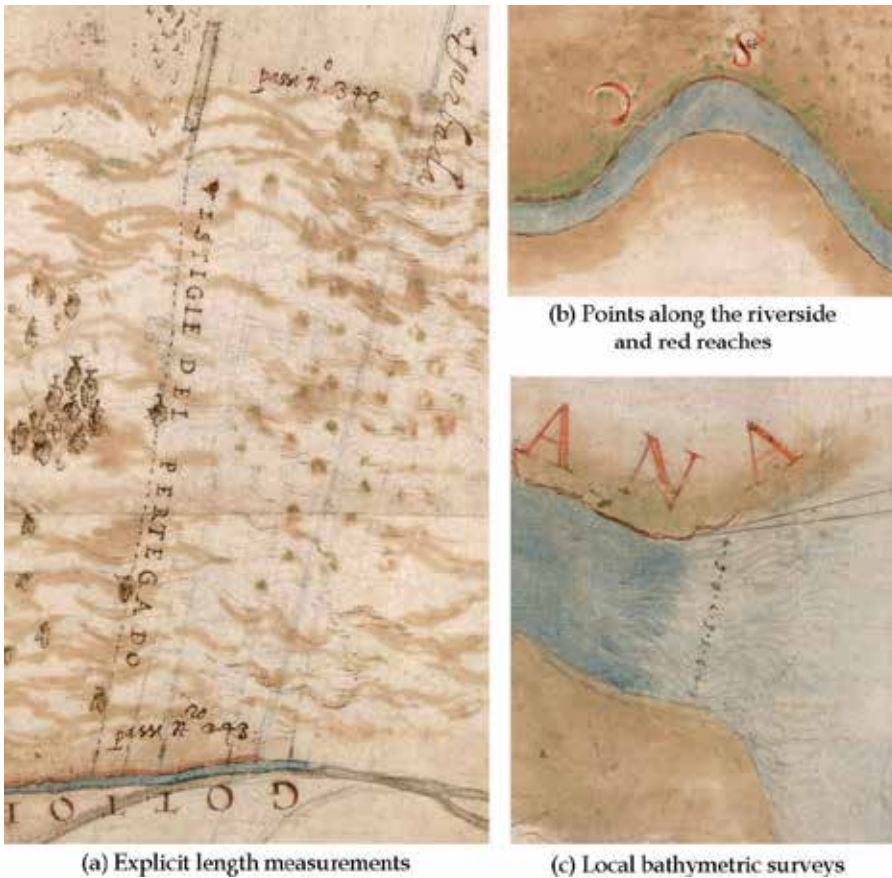 passi n.º 340
ISTIGIE DEL PERTEGADO
passi n.ro
GOTTOI
(a) Explicit length measurements
(b) Points along the riverside
and red reaches
A N A
(c) Local bathymetric surveys